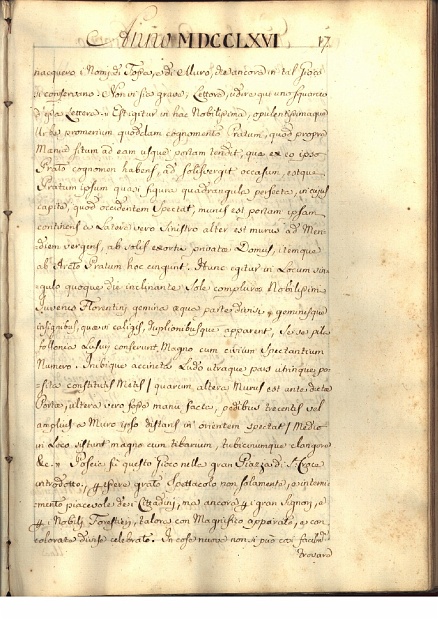 Anno MDCCLXVI 17
nacquero i Nomi di Fossa, e di Muro, che ancora in tal Gioco
si conservano. Non vi sia grave, Lettore, udire qui uno squarcio
d'essa Lettera. Est igitur in hac Nobilissima, opulentissimaque
Urbe promerium quoddam cognomento Pratum, quod prope
Mænia situm ad eam usque portam tendit, quæ ex eo ipso
Prato cognomen habens, ad solis vergit occasum, estque
Pratum ipsum quasi figura quadrangula perfecta, in cujus
capite, quod occidentem spectat, muris est portam ipsam
continens a Latere vero sinistro alter est murus ad Meri
diem vergens, ab solis exortu privatæ Domus, itemque
ab Arcto Pratum hoc cingunt. Hunc igitur in Locum sin
gulo quoque die inclinante Sole complures Nobilissimi
Juvenes Florentini gemina æqua parte divisi, geminisque
insignibus, quæ in caligis, duplionibusque apparent, sese pila
follonia Lusuri conferunt, Magno cum civium Spectantium
Numero. Inibique accincta Ludo utraque pars utrinque, po
sita constitutis Metis / quarum altera Murus est ante dicta
Porta, altera vero fossa manu facta, pedibus trecentis vel
amplius a Muro ipso distans in orientem spectat / Medio
in Loco sistunt magno cum tibiarum, tubicinumque clangore
&c. Poscia si questo Gioco nella gran Piazza di S. Croce
introdotto, p essere grato spettacolo non solamente, e interni
mento piacevole de i Cittadini, ma ancora p i gran Signori, e
p i Nobili Forestieri, talora con Magnifico apparato, e con
colorate divise celebrato. In cose nuove non si può così facilm.
trovare